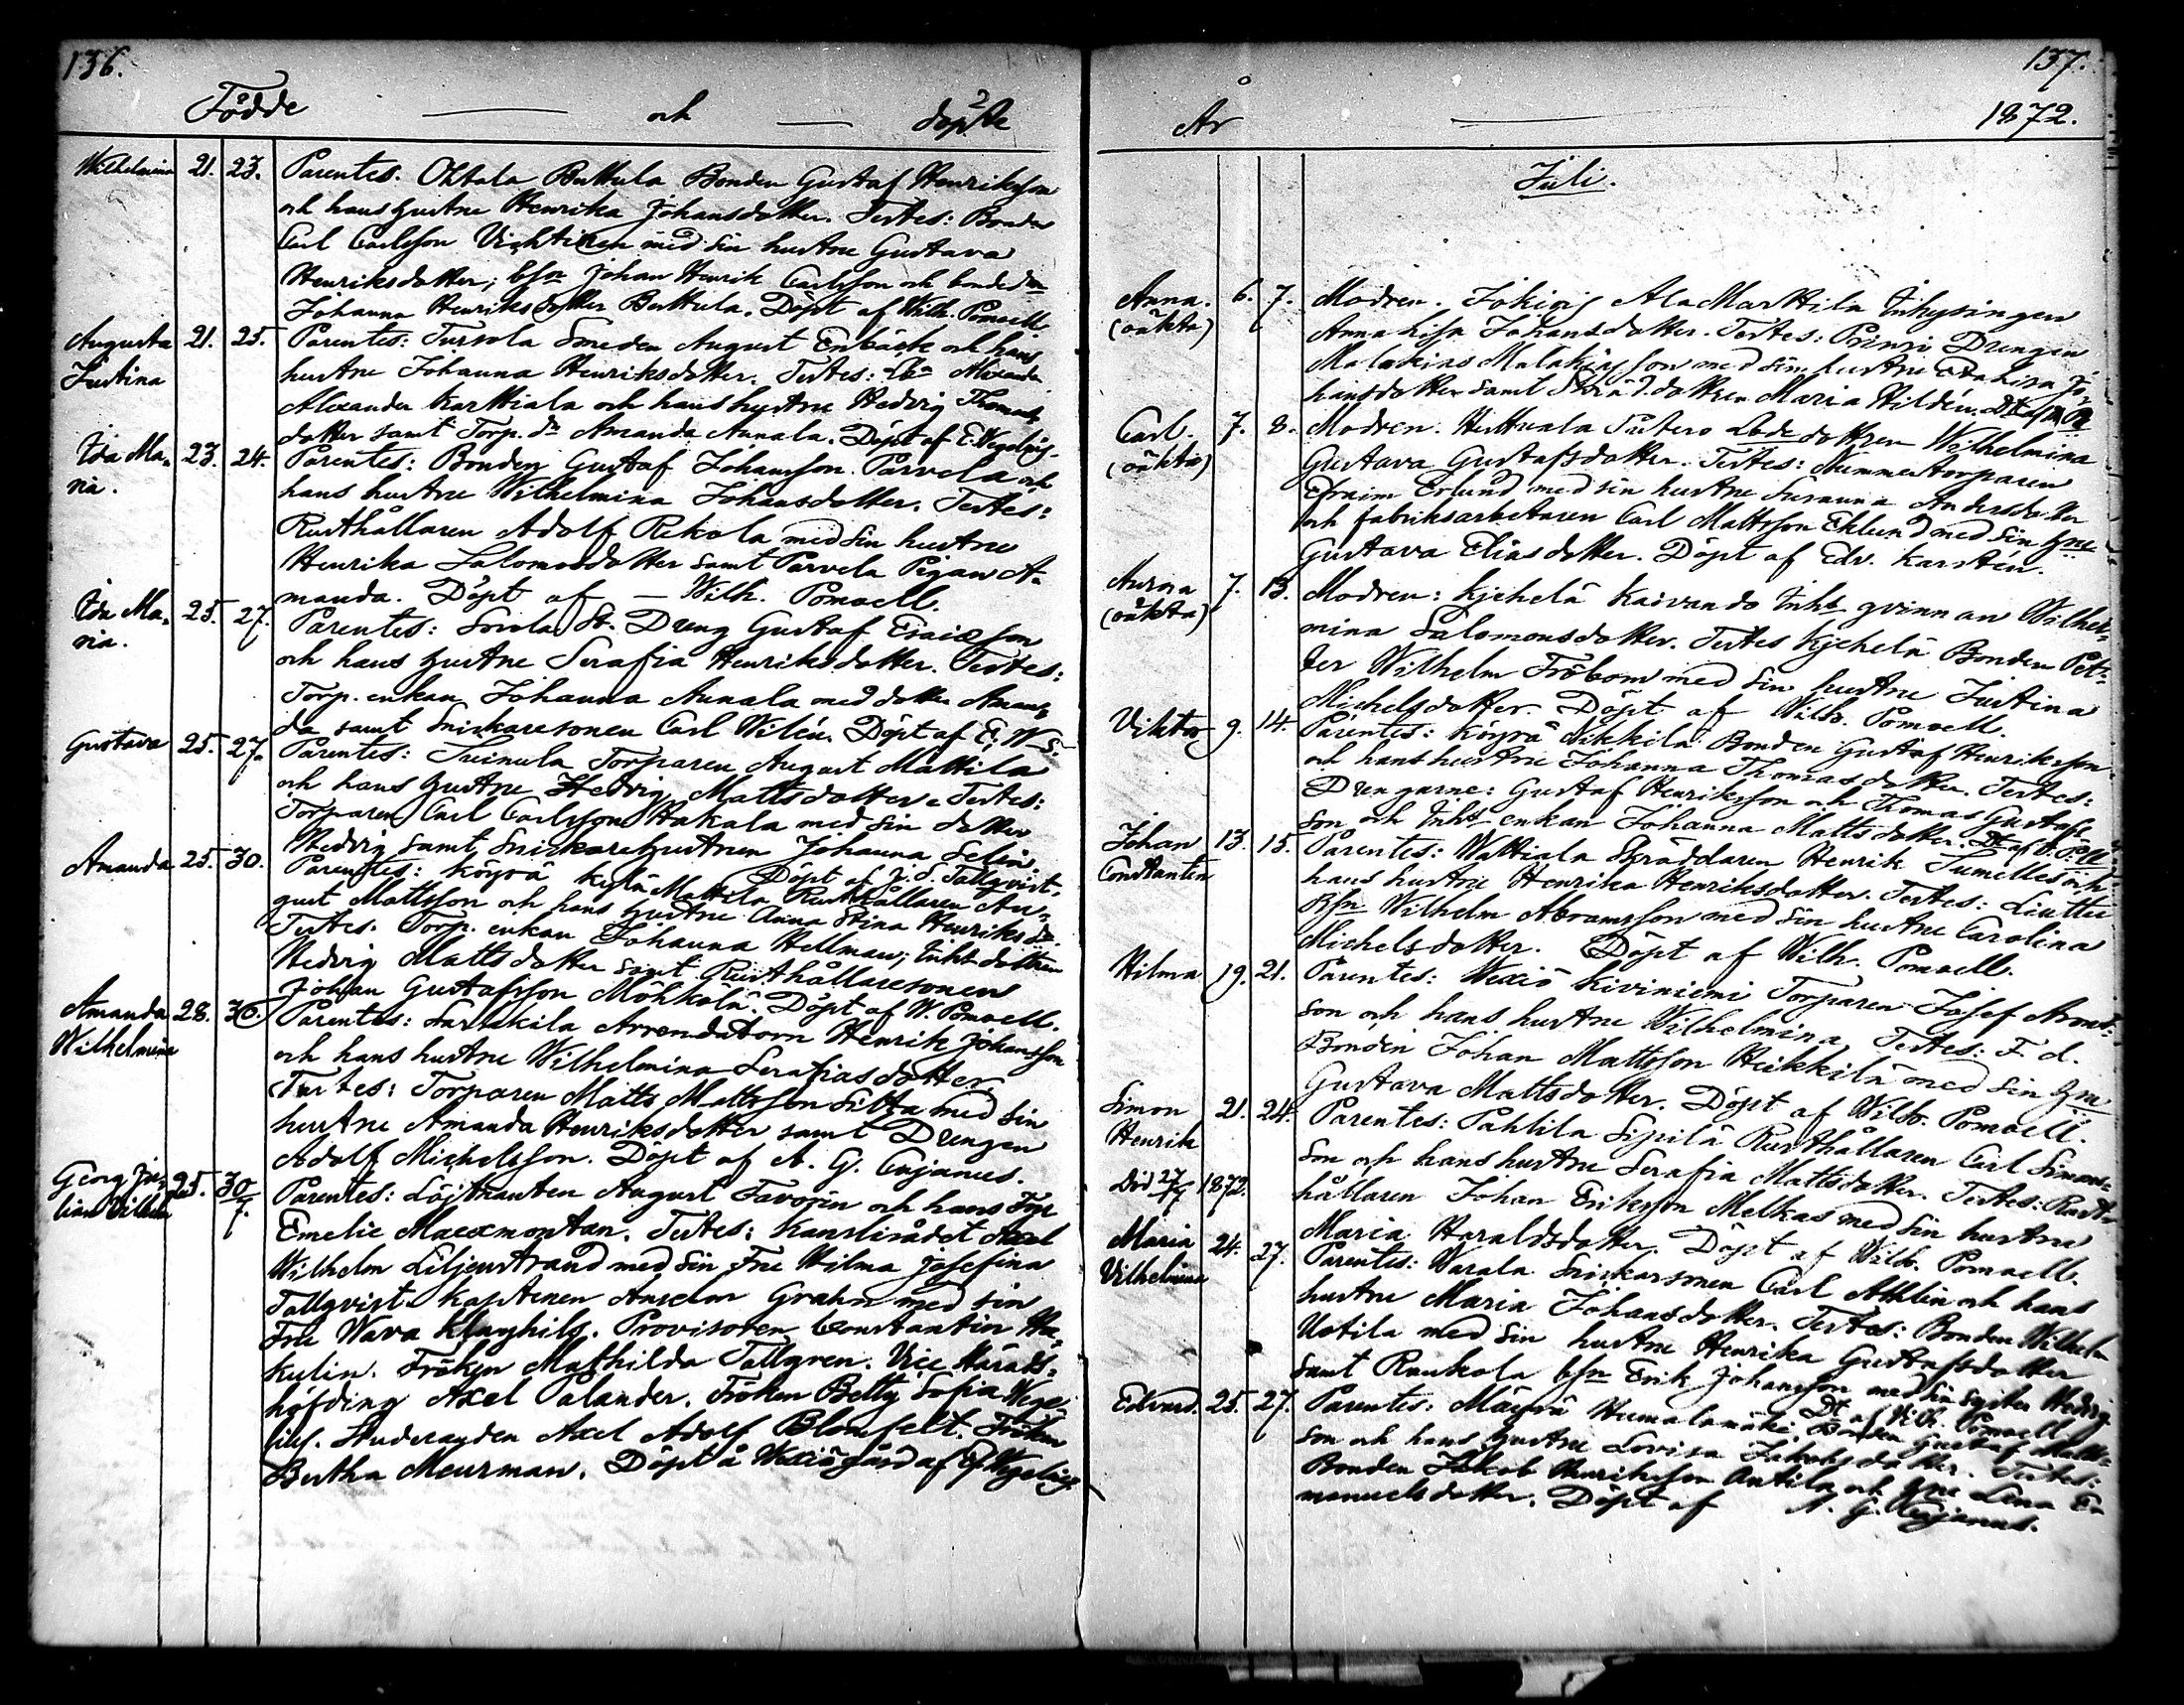 136.
Födde — och — döpte
Wilhelmina 21. 23. Parentes. Ohtola Buttula Bonden Gustaf Henriksson
och hans hustru Henrika Johansdotter. Testes: Bonden
Carl Carlsson Vichtinen med sin hustru Gustava
Henriksdotter; bsn Johan Henrik Carlsson och bondedn
Johanna Henriksdotter Buttula. Döpt af Wilh. Pomoell.
Augusta 21. 25. Parentes: Tursola Smeden August Enbäck och hans
Justina hustru Johanna Henriksdotter. Testes:
Alexander Karttiala och hans hustru Hedvig Thomas
dotter samt Torp. dn Amanda Annala. Döpt af E. Wegelius.
Ida Ma- 23. 24. Parentes: Bonden Gustaf Johansson Parvela och
ria. hans hustru Wilhelmina Johansdotter. Testes:
Rusthållaren Adolf Rekola med sin hustru
Henrika Salomonsdotter samt Parvela Pigan A-
manda. Döpt af — Wilh. Pomoell.
Ida Ma- 25. 27. Parentes: Dreng Gustaf Esaiasson
ria. och hans hustru Serafia Henriksdotter. Testes:
Torp. enkan Johanna Annala med dotter Aman
da samt Snickaresonen Carl Wilén. Döpt af E. W-s.
Gustava 25. 27. Parentes: Tuimula Torparen August Mattila
och hans hustru Hedvig Mattsdotter. Testes:
Torparen Carl Carlsson Hakala med sin dotter
Hedvig samt Snickarehustrun Johanna Selin
Döpt af J. S. Tallqvist.
Amanda 25. 30. Parentes: Köyrä Kylä Mattila Rusthållaren Au-
gust Mattsson och hans hustru Anna Stina Henriksdr.
Testes. Torp. enkan Johanna Hellman; Inhs dottren
Hedvig Mattsdotter samt Rusthållaresonen
Johan Gustafsson Möhkölä. Döpt af W. Pomoell.
Amanda 28. 30. Parentes: Sarsakila Arrendatorn Henrik Johansson
Wilhelmina och hans hustru Wilhelmina Serafiasdotter
Testes: Torparen Matts Mattsson Silta med sin
hustru Amanda Henriksdotter samt Drengen
Adolf Michelsson. Döpt af A. G. Cajanus.
Georg Ju- 25. 30/7. Parentes: Löjtnanten August Favorin och hans Fru
lian Vilhelm Emelie Maexmontan. Testes: Kanslirådet Axel
Wilhelm Liljenstrand med sin Fru Hilma Josefina
Tallqvist. Kaptenen Anselm Grahn med sin
Fru Wava Klayhils. Provisoren Constantin Ha-
kulin. Fröken Mathilda Tallgren. Vice Härads-
höfding Axel Palander. Fröken Betty Sofia Wege-
lius. Studeranden Axel Adolf Blomfelt. Fröken
Bertha Meurman. Döpt å Wexiö gård af E. Wegelius
137.
År — 1872.
Juli.
Anna. 6. 7. Modren. Jokioj Ala Marttila Inhysingen
(oäkta) Anna Lisa Johansdotter. Testes: Drengen
Malakias Malakiasson med sin hustru Eva Lisa Jo-
hansdotter samt Skräd. dottren Maria Hildén.
Carl. 7. 8. Modren. Huttuala dottren Wilhelmina
(oäkta) Gustava Gustafsdotter. Testes: Nummertorparen
Efraim Erlund med sin hustru Susanna Andersdotter
och fabriksarbetaren Carl Mattsson Eklund med sin hru
Gustava Eliasdotter. Döpt af Edv. Karstén.
Aurora 7. 13. Modren: Kjehelä Kaivando Inhs qvinnan Wilhel-
(oäkta) mina Salomonsdotter. Testes Kjehelä Bonden Pet-
ter Wilhelm Fröbom med sin hustru Justina
Michelsdotter. Döpt af Wilh. Pomoell.
Viktor 9. 14. Parentes: Köyrä Nikkilä Bonden Gustaf Henriksson
och hans hustru Johanna Thomasdotter. Testes:
Drengarne: Gustaf Henriksson och Thomas Gustafs
son och Inhs enkan Johanna Mattsdotter.
Johan 13. 15. Parentes: Wattiala Skräddaren Henrik Sumelles och
Constantin hans hustru Henrika Henriksdotter. Testes: Liuttu
Rsn Wilhelm Abramsson med sin hustru Carolina
Michelsdotter. Döpt af Wilh. Pomoell.
Hilma 19. 21. Parentes: Wexiö Kiviniemi Torparen Josef
son och hans hustru Wilhelmina Testes: F. d.
Bonden Johan Mattsson Heikkilä med sin hru
Gustava Mattsdotter. Döpt af Wilh. Pomoell.
Simon 21. 24. Parentes: Pahlila Sipilä Rusthållaren Carl Simons-
Henrik son och hans hustru Serafia Mattsdotter. Testes: Rust-
Död 27/7 1872. hållaren Johan Eriksson Melkas med sin hustru
Maria Haraldsdotter. Döpt af Wilh. Pomoell.
Maria 24. 27. Parentes: Warala Snickarsonen Carl Ahlbin och hans
Vilhelmina hustru Maria Johansdotter. Testes: Bonden Wilhelm
Uotila med sin hustru Henrika Gustafsdotter
samt Raukola bsn Erik Johansson med sin syster Hedvig
Dt af Wilh. Pomoell
Edvard. 25. 27. Parentes: Mäyrä Humalamäki Bonden Gustaf Matts-
son och hans hustru Lovisa Jakobsdotter. Testes:
Bonden Jakob Henriksson Antila och hru Lena E-
manuelsdotter. Döpt af A. G. Cajanus.